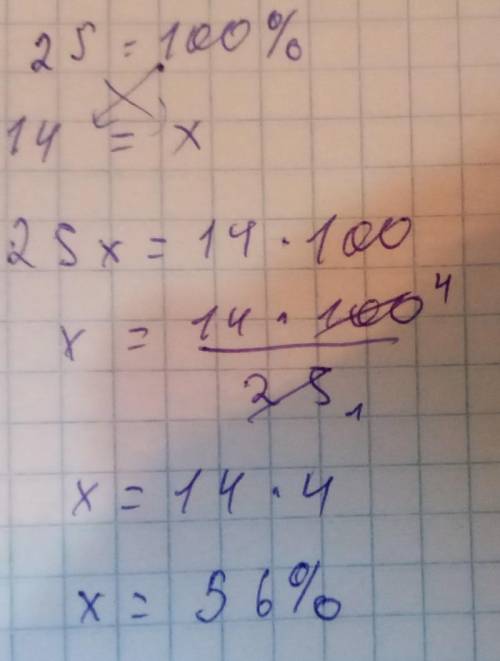 25 = 100%
14 = x
25x = 14 · 100
x = 14 · 100 4
25 1
x = 14 · 4
x = 56%